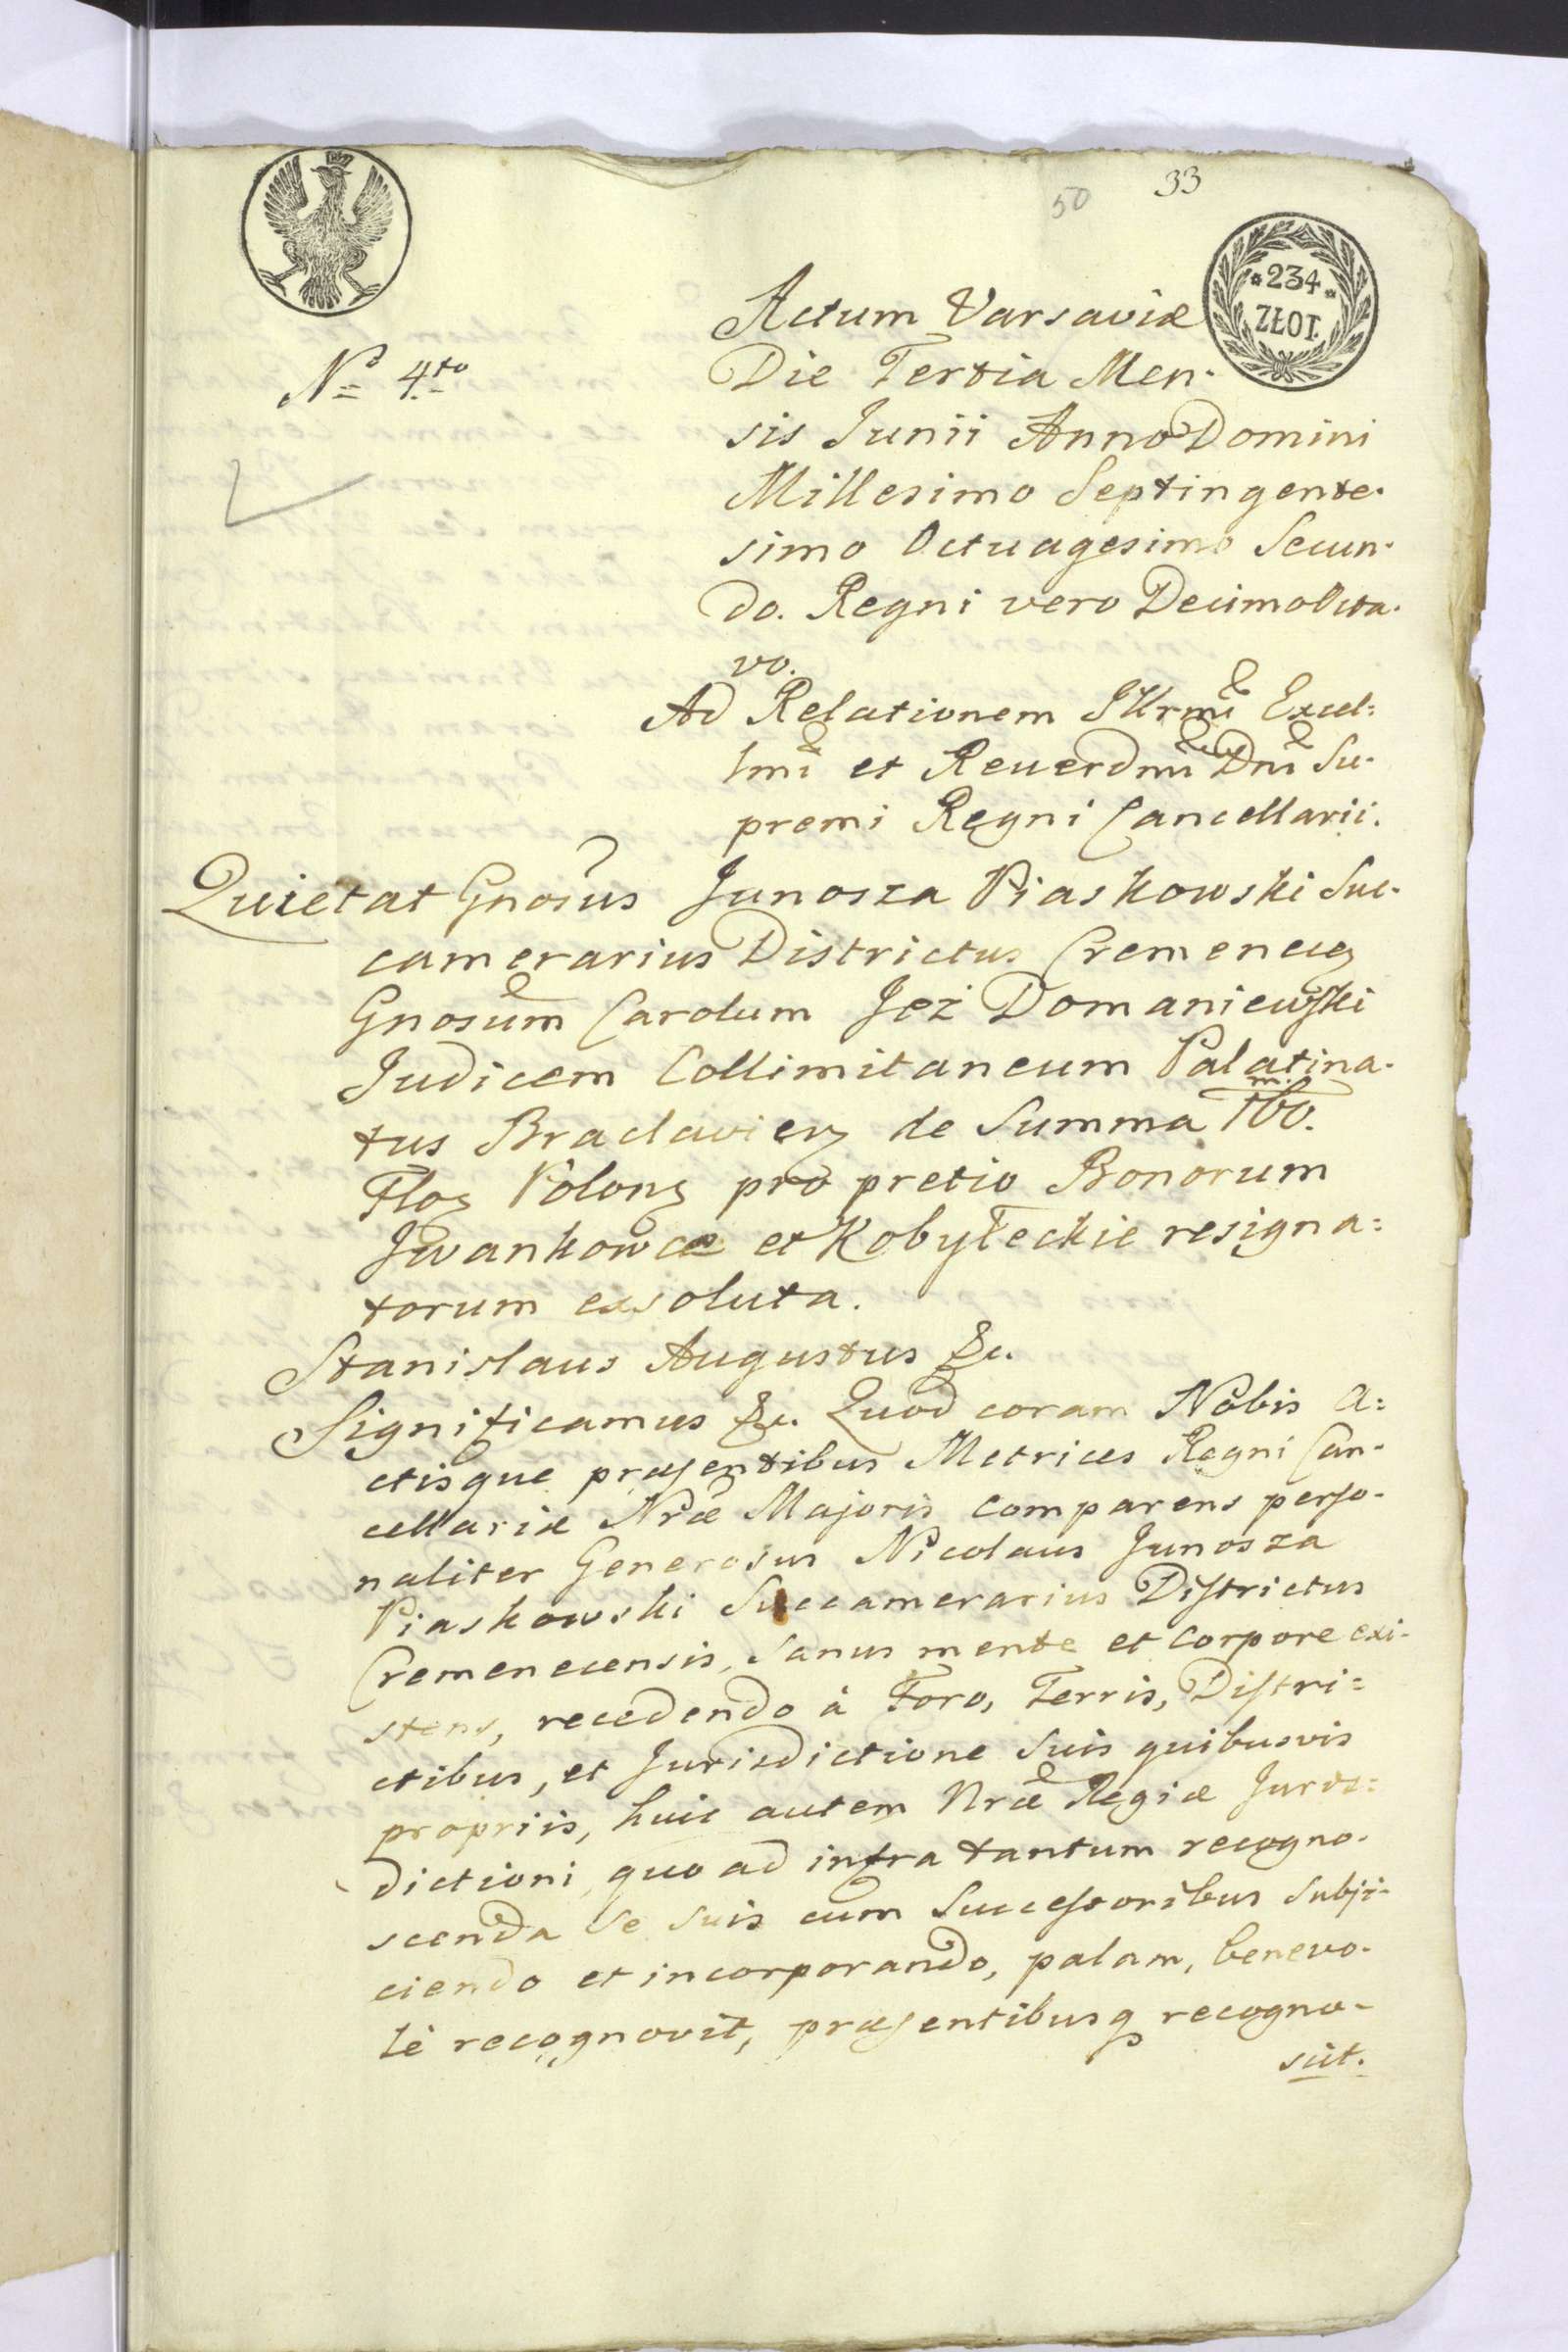 50 33
* 234 *
ZŁOT.
Nº 4.to
Actum Varsaviæ
Die Tertia Men-
sis Junii Anno Domini
Millesimo Septingente-
simo Octuagesimo Secun-
do. Regni vero Decimo Octa-
vo.
Ad Relationem Illrmi Excel=
lmi et Reverdmi Dni Su-
premi Regni Cancellarii.
Quietat Gnosus Junosza Piaskowski Suc-
camerarius Districtus Cremenecz
Gnosum Carolum Jeż Domaniewski
Judicem Collimitaneum Palatina-
tus Braclavien de Summa
Floz Polonz pro pretio Bonorum
Jwankowce et Kobyłeckie resigna=
torum exsoluta.
Stanislaus Augustus &c.
Significamus &c. Quod coram Nobis A=
ctisque præsentibus Metrices Regni Can-
cellariæ Nræ Majoris comparens perso-
naliter Generosus Nicolaus Junosza
Piaskowski Succamerarius Districtus
Cremenecensis, Sanus mente et Corpore exi-
stens, recedendo à Foro, Terris, Distri=
ctibus, et Jurisdictione Suis quibusvis
propriis, huic autem Nræ Regiæ Juris=
dictioni, quo ad infra tantum recogno-
scenda Se Suis cum Successoribus Subji-
ciendo et incorporando, palam, benevo-
lè recognovit, præsentibusq recogno-
scit.